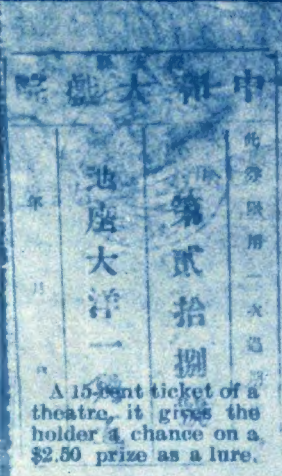 中和大戲院
此券限用一次過
第貳拾捌
池座大洋一
年月
A 15-cent ticket of a
theatre, it gives the
holder a chance on a
$2.50 prize as a lure.